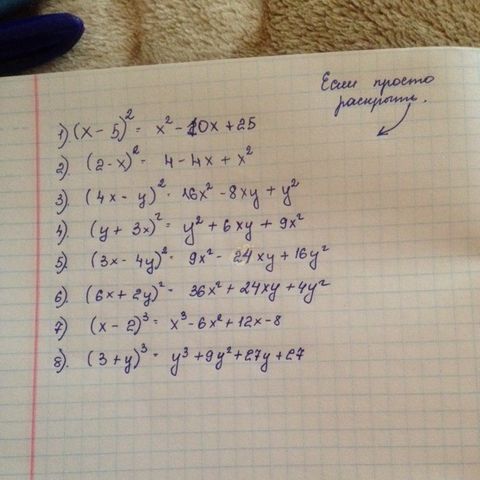 Если просто
раскрыть.
1). (x - 5)² = x² - 10x + 25
2). (2 - x)² = 4 - 4x + x²
3). (4x - y)² = 16x² - 8xy + y²
4). (y + 3x)² = y² + 6xy + 9x²
5). (3x - 4y)² = 9x² - 24xy + 16y²
6). (6x + 2y)² = 36x² + 24xy + 4y²
7) (x - 2)³ = x³ - 6x² + 12x - 8
8). (3 + y)³ = y³ + 9y² + 27y + 27